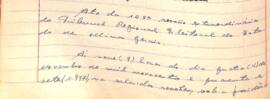 Ata da 1033 sessão extraordinária
do Tribunal Regional Eleitoral do Esta-
do de Minas Gerais.
Às nove (9) horas do dia quatro (4) de
novembro de mil novecentos e quarenta e
sete (1.947) na sala das sessões, sob a presidên